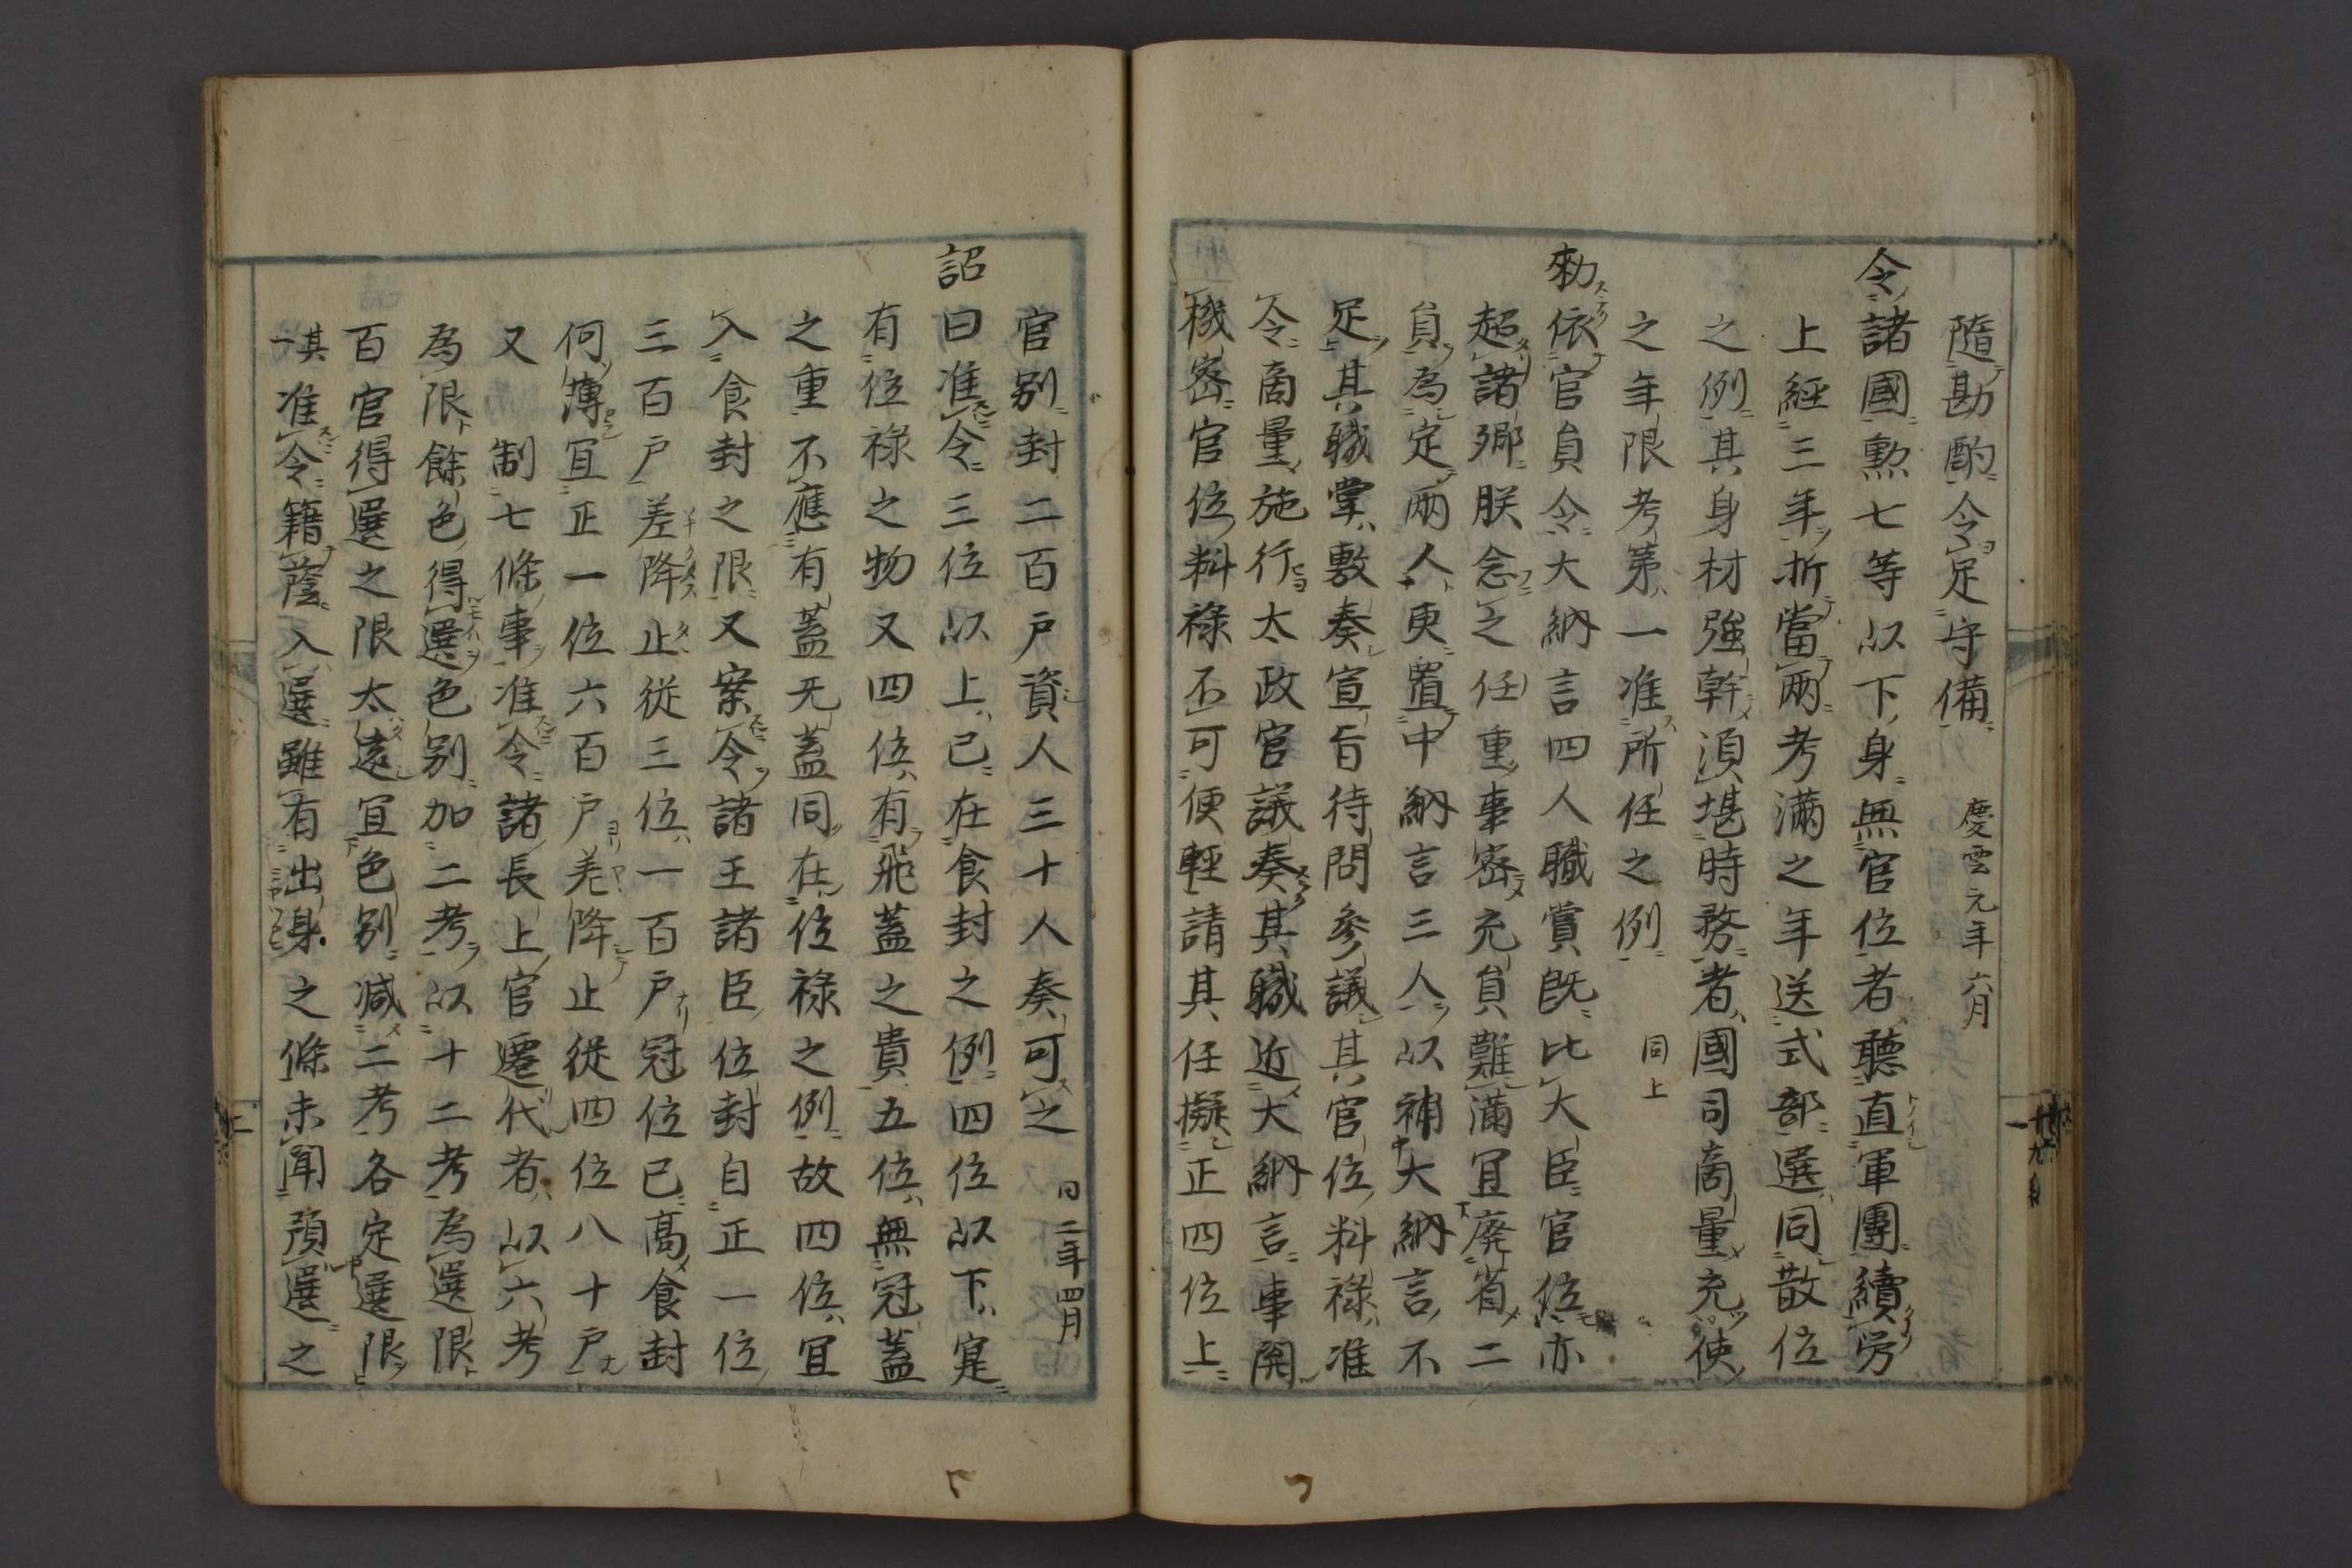 隨勘酌令足守備　慶雲元年六月
令諸國勲七等以下身無官位者聽直軍團續労
上經三年折當兩考滿之年送式部選同散位
之例其身材強幹湏堪時務者國司商量充使
之年限考第一准所任之例　同上
勅依官員令大納言四人職賞既比大臣官位亦
超諸郷朕念之任重事密充員難滿冝廃省二
員為定兩人更置中納言三人以補大納言不
足其職掌敷奏宣旨待問參議其官位料禄准
令商量施行太政官議奏其職近大納言事関
機密官位料禄不可便輕請其任擬正四位上
官别封二百戸資人三十人奏可之　同二年四月
詔曰准令三位以上已在食封之例四位以下寔
有位禄之物又四位有飛蓋之貴五位無冠蓋
之重不應有蓋无蓋同在位禄之例故四位冝
入食封之限又案令諸王諸臣位封自正一位
三百戸差降止従三位一百戸冠位已髙食封
何薄冝正一位六百戸差降止従四位八十戸
又　制七條事准令諸長上官遷代者以六考
為限餘色得選色别加二考以十二考為選限
百官得選之限太遠冝色别减二考各定選限
一其　准令籍蔭入選雖有出身之條未聞預選之